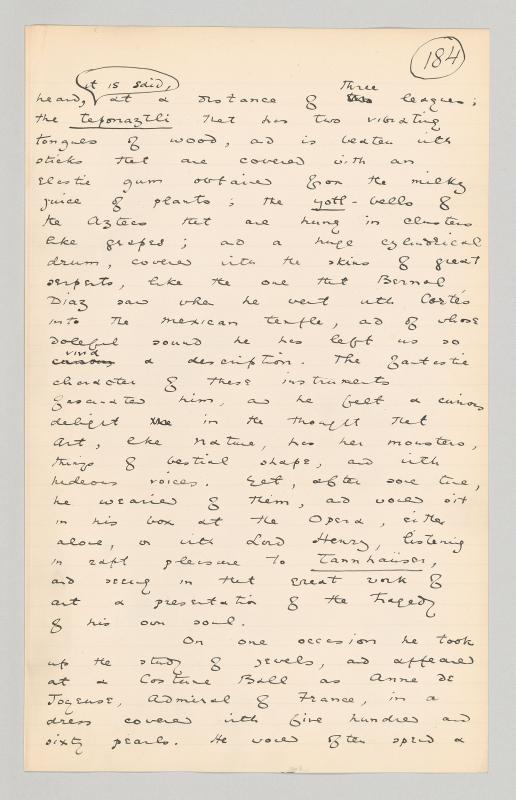 184
it is said,
Three
heard, at a distance of two leagues;
the teponaztli that has two vibrating
tongues of wood, and is beaten with
sticks that are covered with an
elastic gum obtained from the milky
juice of plants; the yotl-bells of
the Aztecs that are hung in clusters
like grapes; and a huge cylindrical
drum, covered with the skins of great
serpents, like the one that Bernal
Diaz saw when he went with Cortés
into the mexican temple, and of whose
doleful sound he has left us so
vivid
curious a description. The fantastic
character of these instruments
fascinated him, and he felt a curious
delight in the thought that
Art, like Nature, has her monsters,
things of bestial shape, and with
hideous voices. Yet, after some time,
he wearied of them, and would sit
in his box at the Opera, either
alone, or with Lord Henry, listening
in rapt pleasure to Tannhaüser,
and seeing in that great work of
art a presentation of the Tragedy
of his own soul.
On one occasion he took
up the study of jewels, and appeared
at a Costume Ball as Anne de
Joyeuse, Admiral of France, in a
dress covered with five hundred and
sixty pearls. He would often spend a